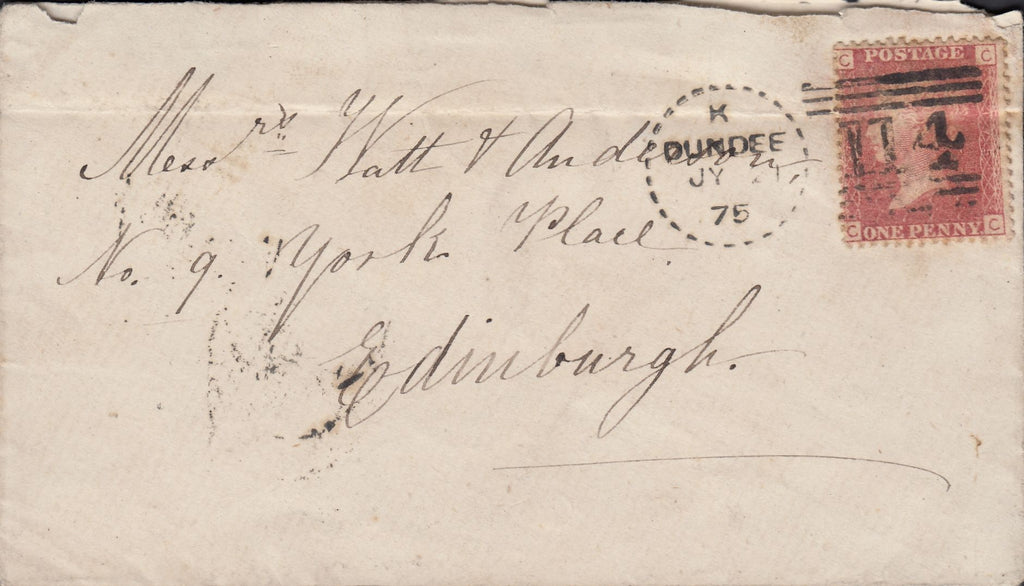 Messrs Watt & Anderson
No. 9. York Place
Edinburgh.
K
DUNDEE
JY 21
75
C POSTAGE C
114
C ONE PENNY C